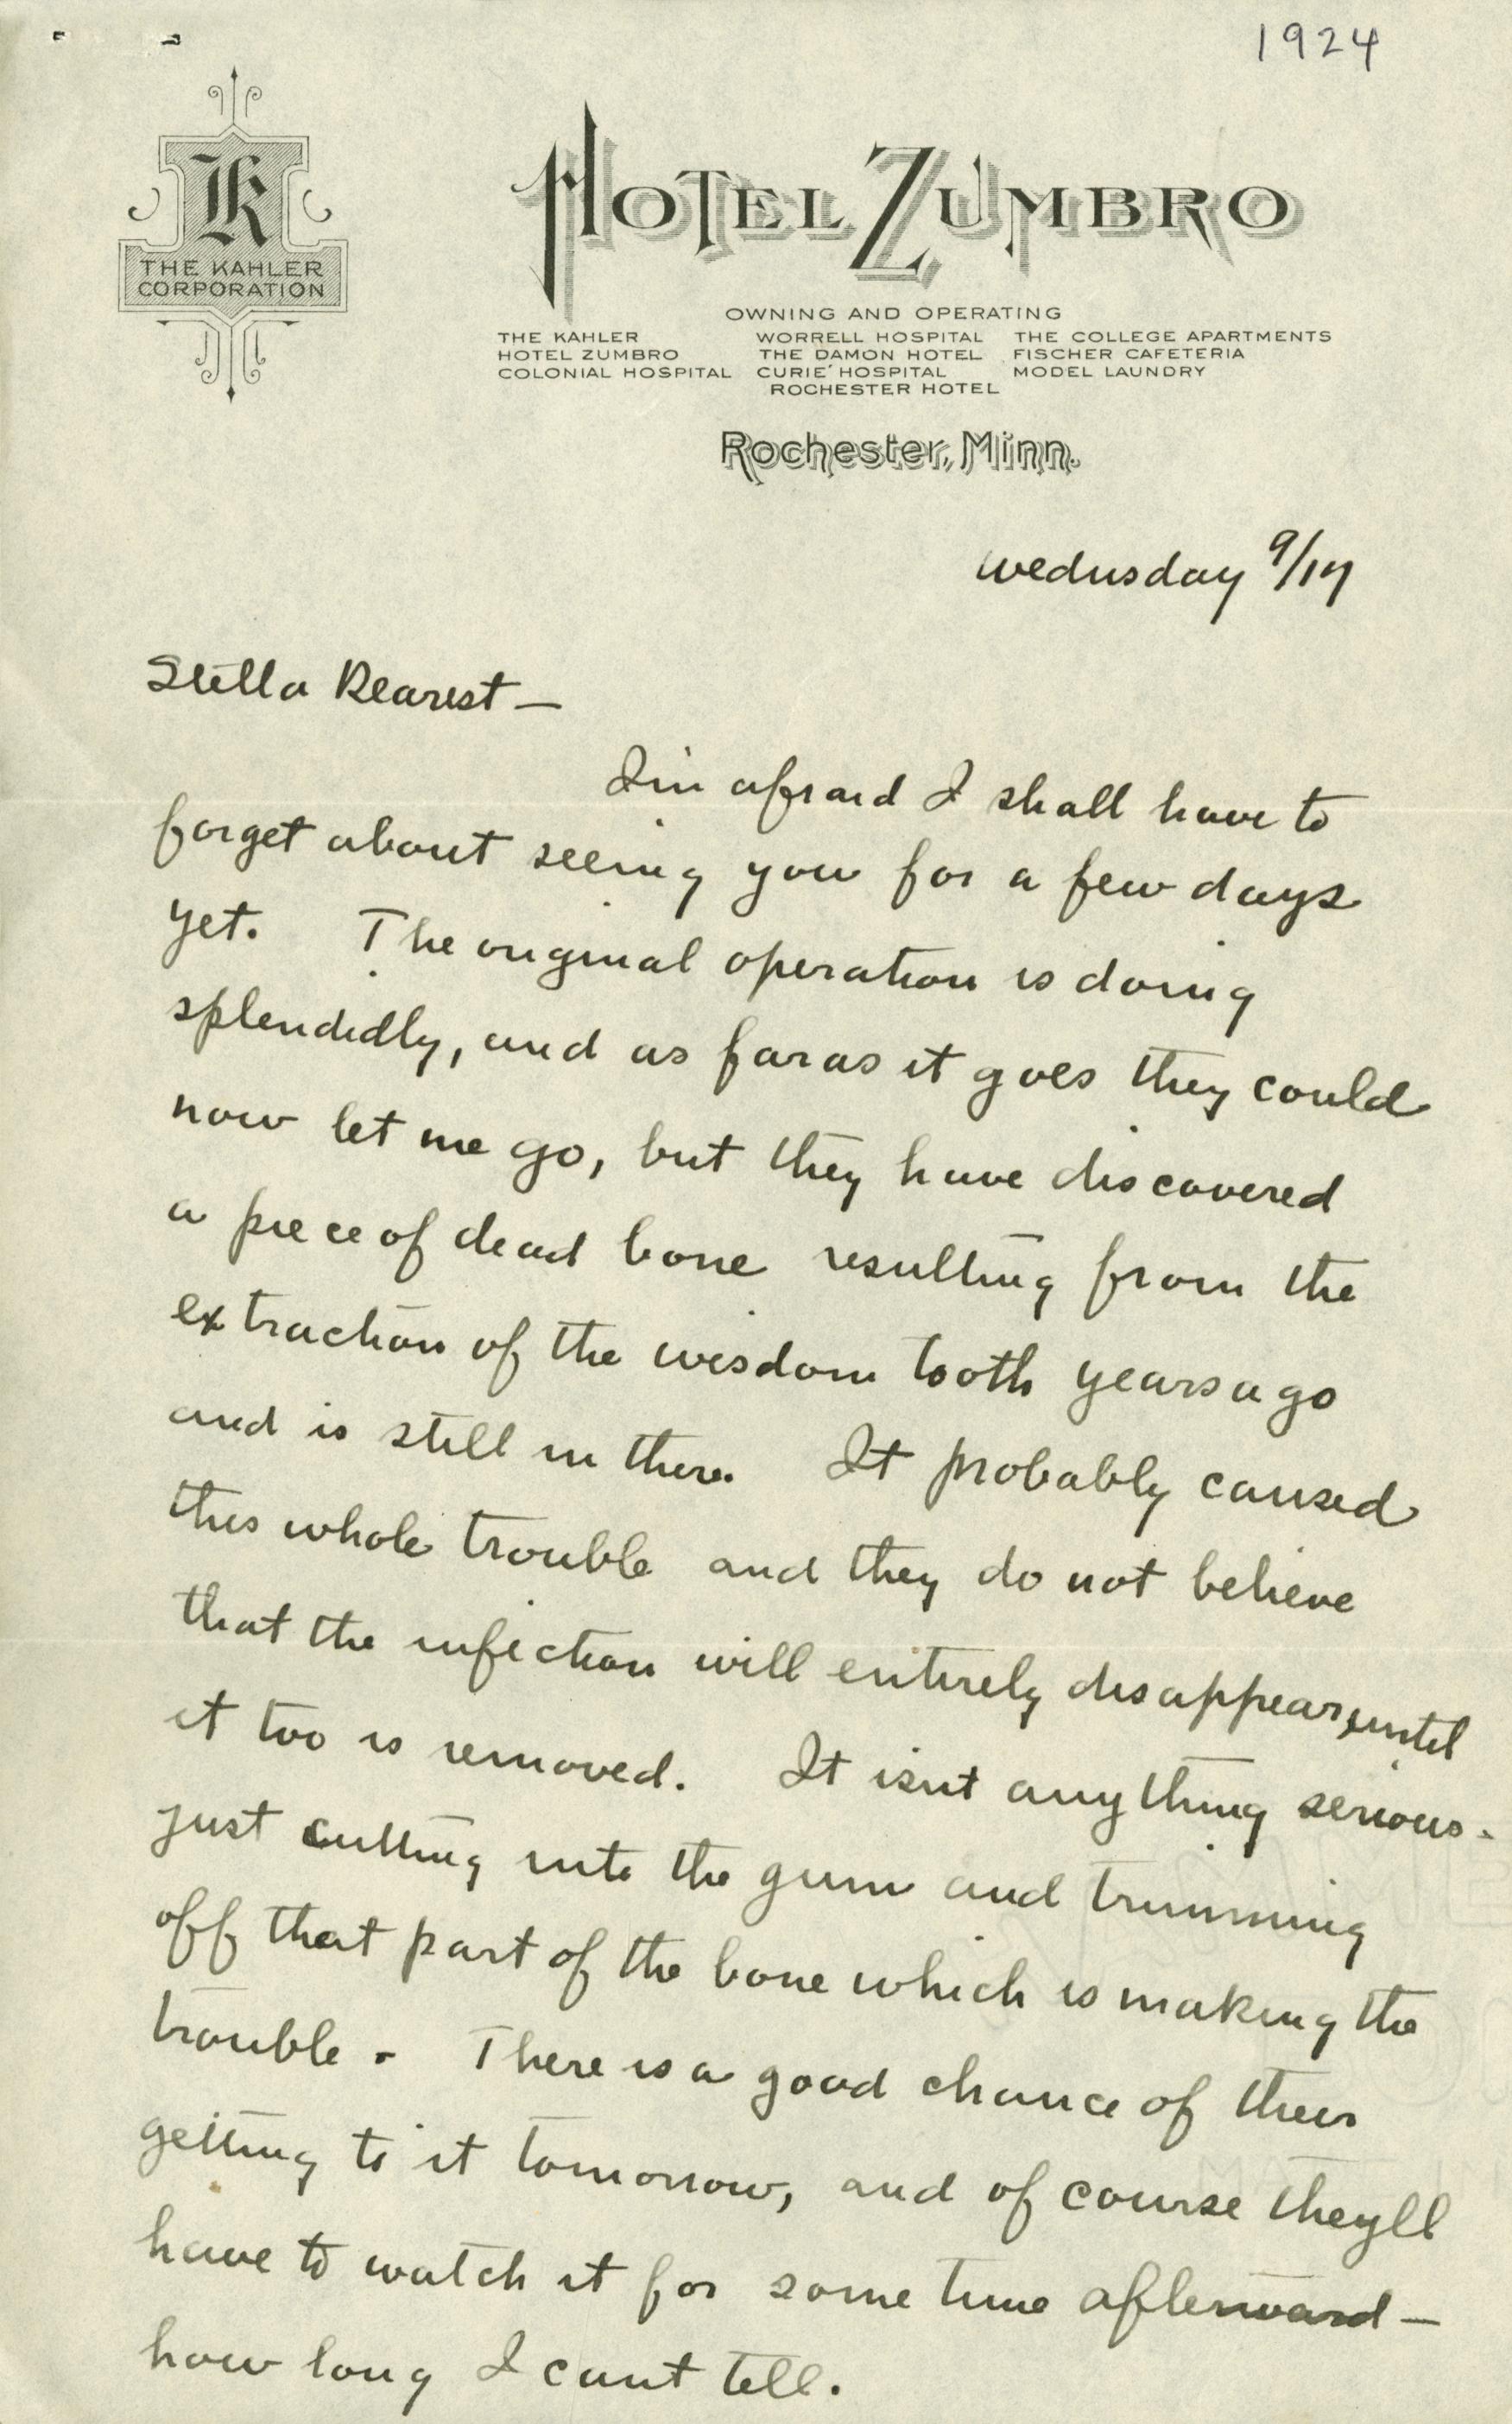 1924
K
THE KAHLER
CORPORATION
HOTEL ZUMBRO
OWNING AND OPERATING
THE KAHLER WORRELL HOSPITAL THE COLLEGE APARTMENTS
HOTEL ZUMBRO THE DAMON HOTEL FISCHER CAFETERIA
COLONIAL HOSPITAL CURIE HOSPITAL MODEL LAUNDRY
ROCHESTER HOTEL
Rochester, Minn.
Wednesday 9/17
Stella Dearest —
I'm afraid I shall have to
forget about seeing you for a few days
yet. The original operation is doing
splendidly, and as far as it goes they could
now let me go, but they have discovered
a piece of dead bone resulting from the
extraction of the wisdom tooth years ago
and is still in there. It probably caused
this whole trouble and they do not believe
that the infection will entirely disappear, until
it too is removed. It isnt anything serious -
just cutting into the gum and trimming
off that part of the bone which is making the
trouble - There is a good chance of their
getting to it tomorrow, and of course theyll
have to watch it for some time afterward —
how long I cant tell.